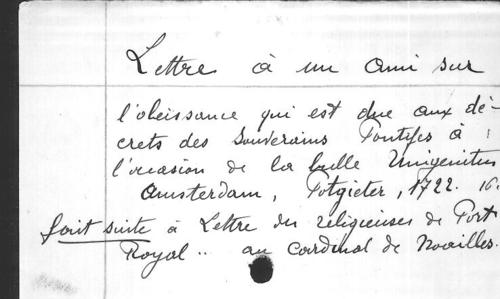 Lettre à un ami sur
l'obeissance qui est due aux dé-
crets des Souverains Pontifes à
l'occasion de la bulle Unigenitus
Amsterdam, Potgieter, 1722. 16
fait suite à Lettre des religieuses de Port-
Royal .. au Cardinal de Noailles.